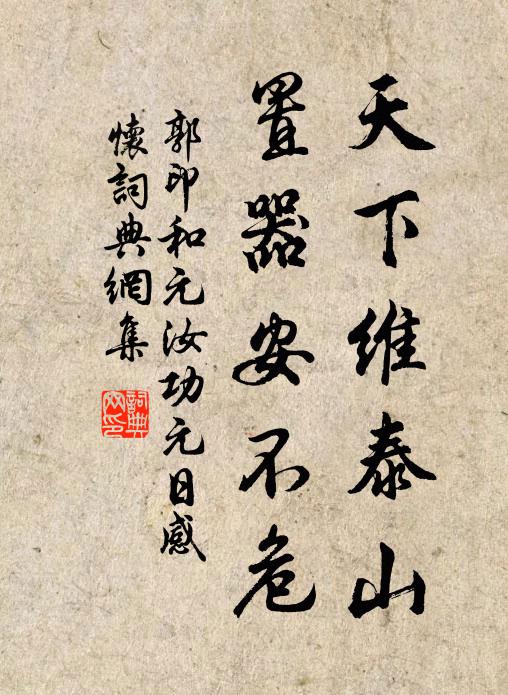 天下維泰山
置器安不危
郭印和元汝功元日感
懷詞典網集
詞典网印